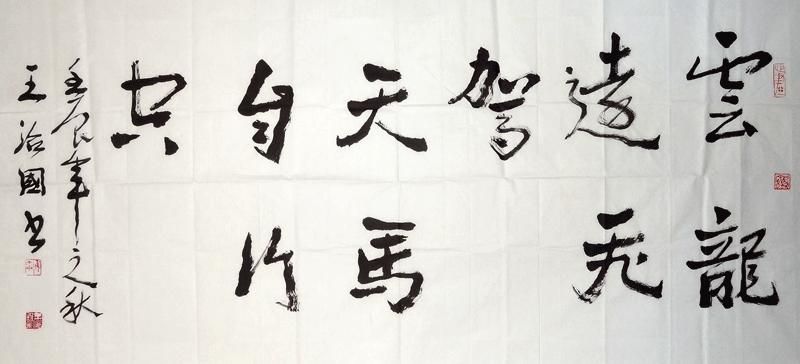 雲龍
遠飛
駕
天馬
自行
空
壬辰年之秋
王治國书